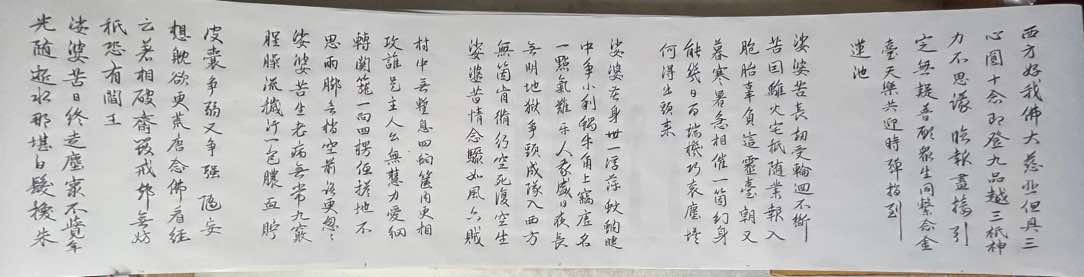 西方好我佛大慈悲但具三
心圓十念即登九品越三祇神
力不思議 臨報盡接引
定無疑普願眾生同繫念金
臺天樂共迎時彈指到
蓮池
娑婆苦長劫受輪迴不斷
苦因離火宅祇隨業報入
胞胎辜負這靈臺朝又
暮寒暑急相催一箇幻身
能幾日百端機巧衮塵埃
何得出頭來
娑婆苦身世一浮萍蚊蚋睫
中爭小利蝸牛角上竊虛名
一點氣難平人我盛日夜長
無明地獄爭頭成隊入西方
無箇肯脩行空死復空生
娑婆苦情念驟如風六賊
村中無暫息四蛇篋內更相
攻誰是主人公無慧力愛網
轉關籠一向四楞但搭地不
思兩腳去梢空前路更悤悤
娑婆苦生老病無常九竅
腥臊流穢汙一包膿血貯
皮囊爭弱又爭強 隨妄
想耽欲更荒唐念佛看經
云著相破齋毀戒卻無妨
祇恐有閻王
娑婆苦日終走塵寰不覺年
光隨逝水那堪白髮換朱